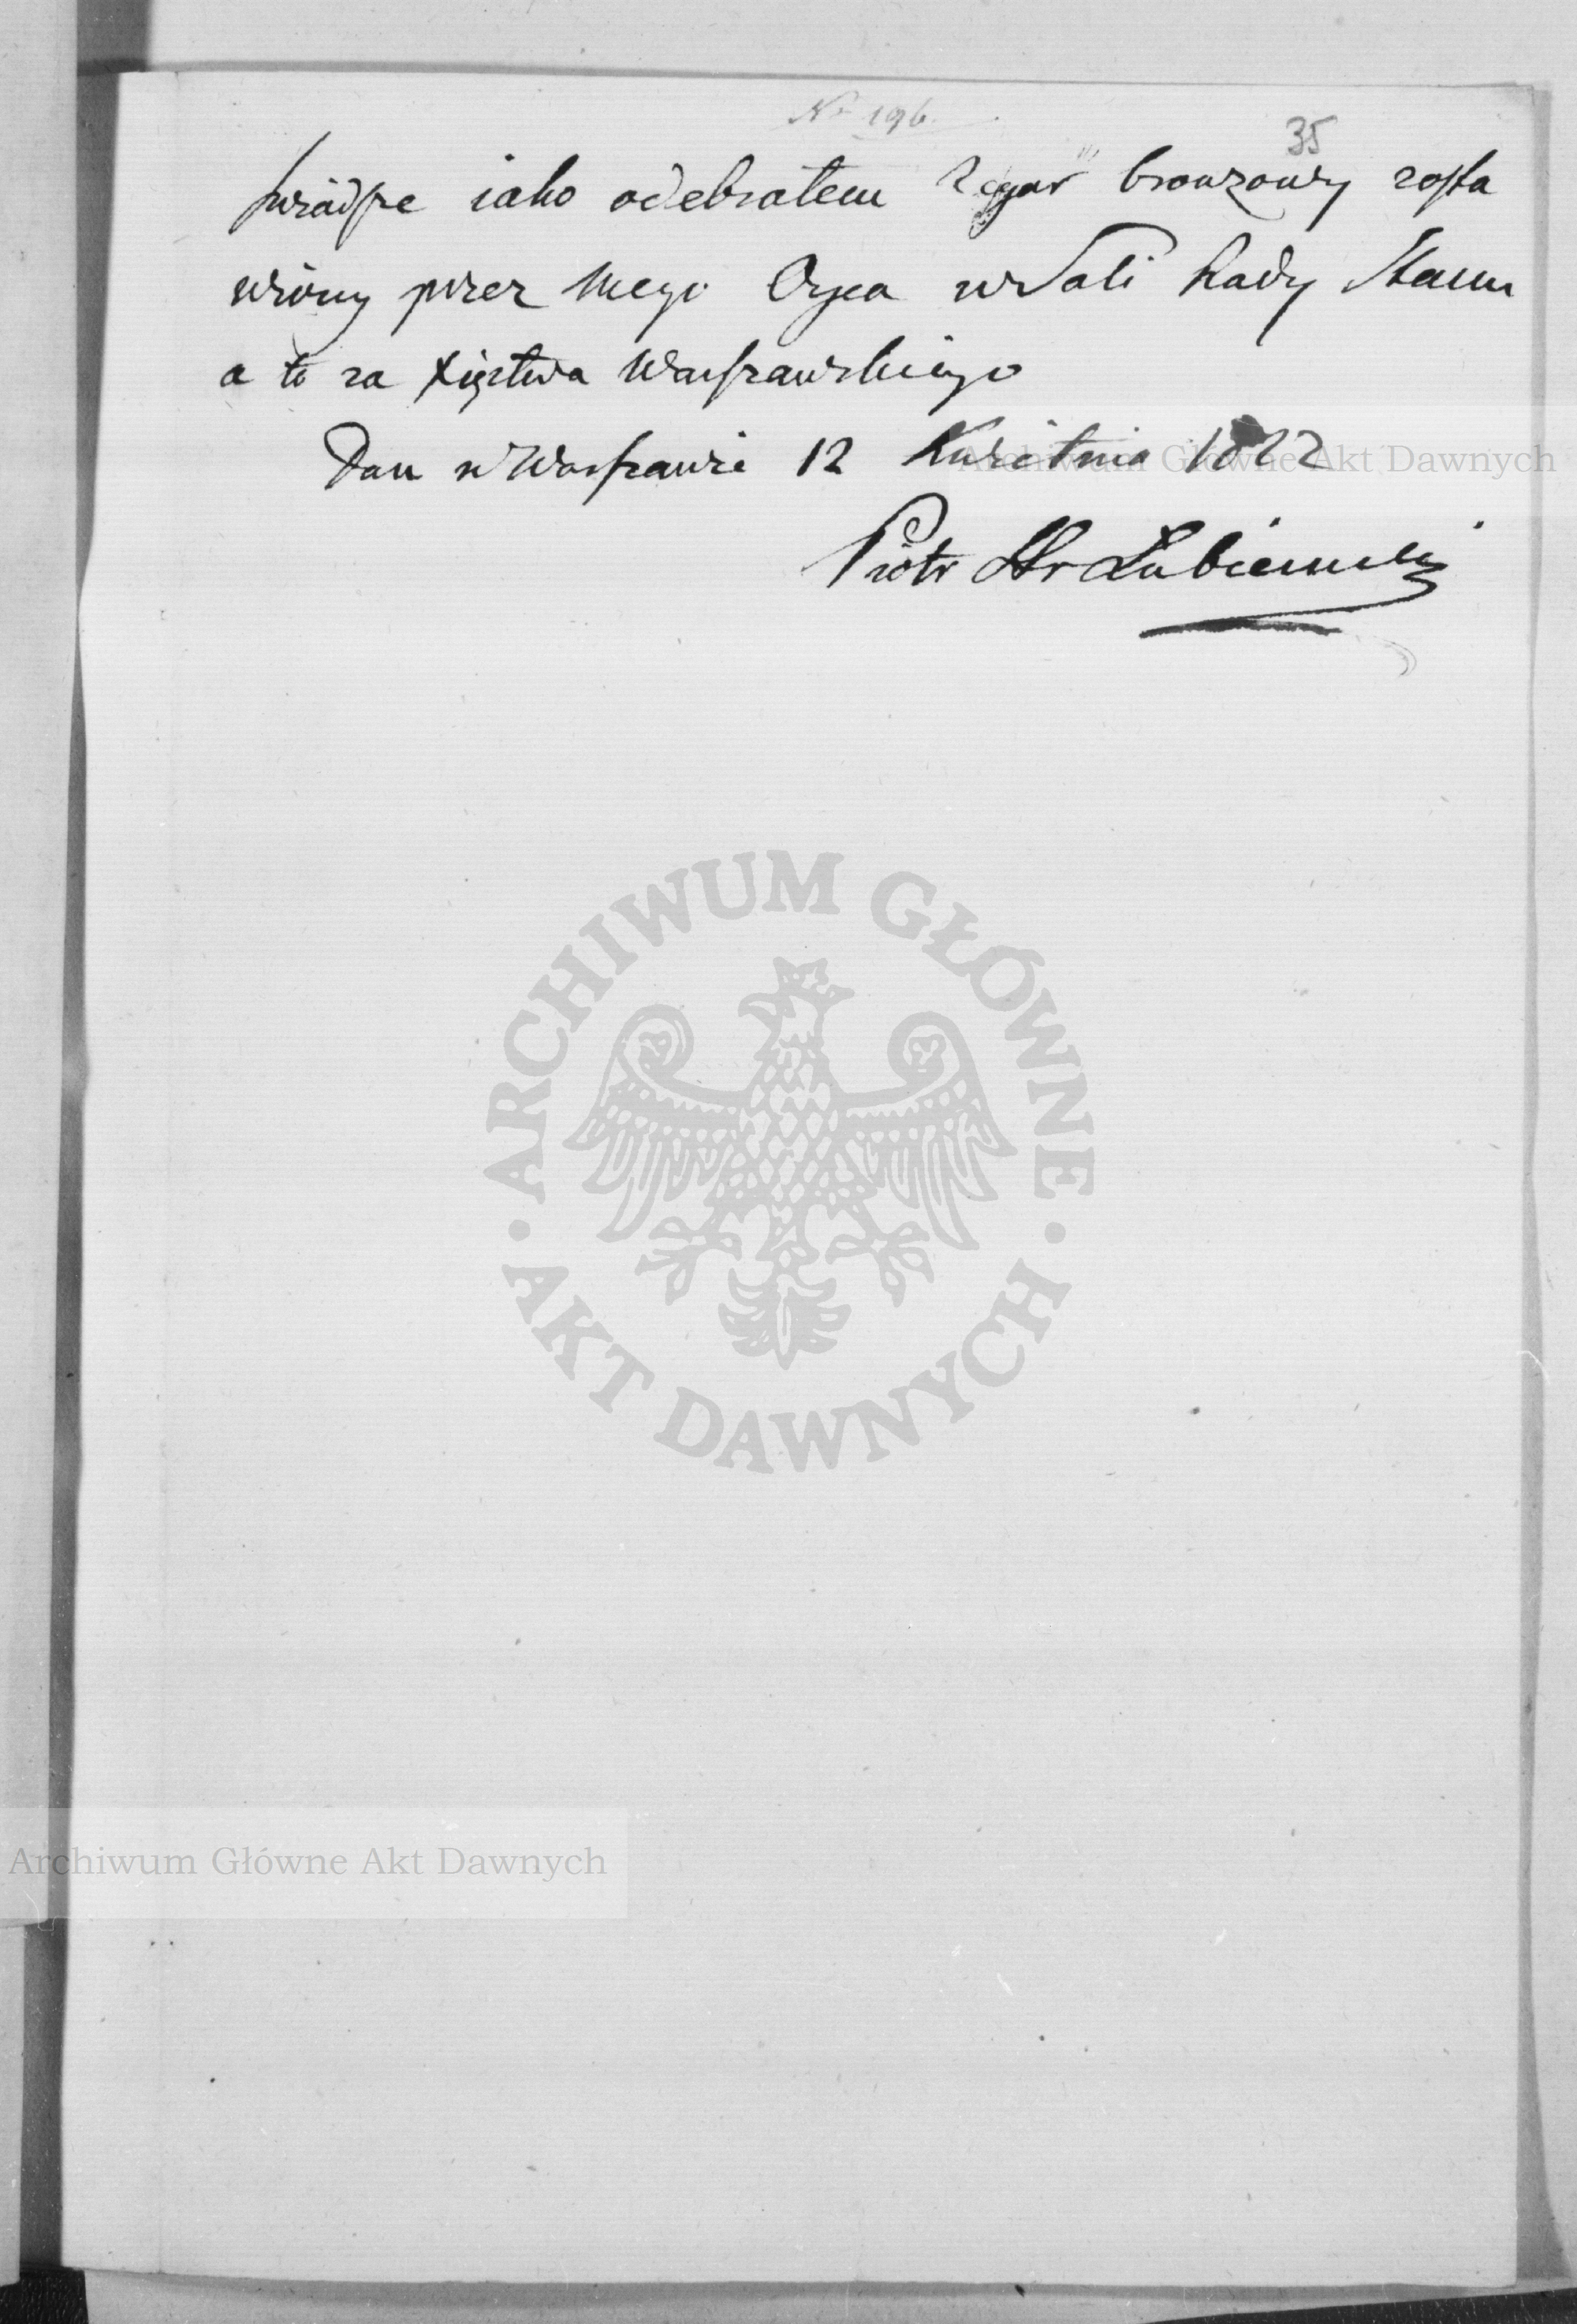 Nr 196.
35
świadczę iako odebrałem Zegar bronzowy zosta
wiony przez mego Oyca w Sali Rady Stanu
a to za Xięstwa Warszawskiego
Dan w Warszawie 12 Kwietnia 1822
Piotr Hr Łubieński
Archiwum Główne Akt Dawnych
ARCHIWUM GŁÓWNE
AKT DAWNYCH
Archiwum Główne Akt Dawnych